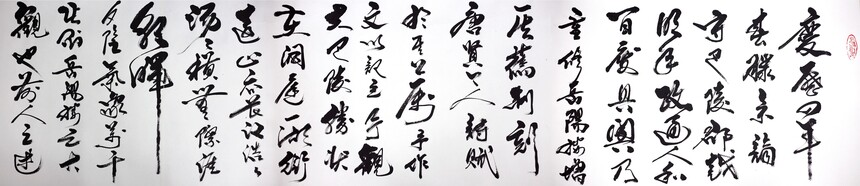 慶曆四年
春滕子京謫
守巴陵郡越
明年政通人和
百廢具興乃
重修岳陽樓增
其舊制刻
唐賢今人詩賦
於其上屬予作
文以記之予觀
夫巴陵勝狀
在洞庭一湖銜
遠山吞長江浩浩
湯湯橫無際涯
朝暉
夕陰氣象萬千
此則岳陽樓之大
觀也前人之述